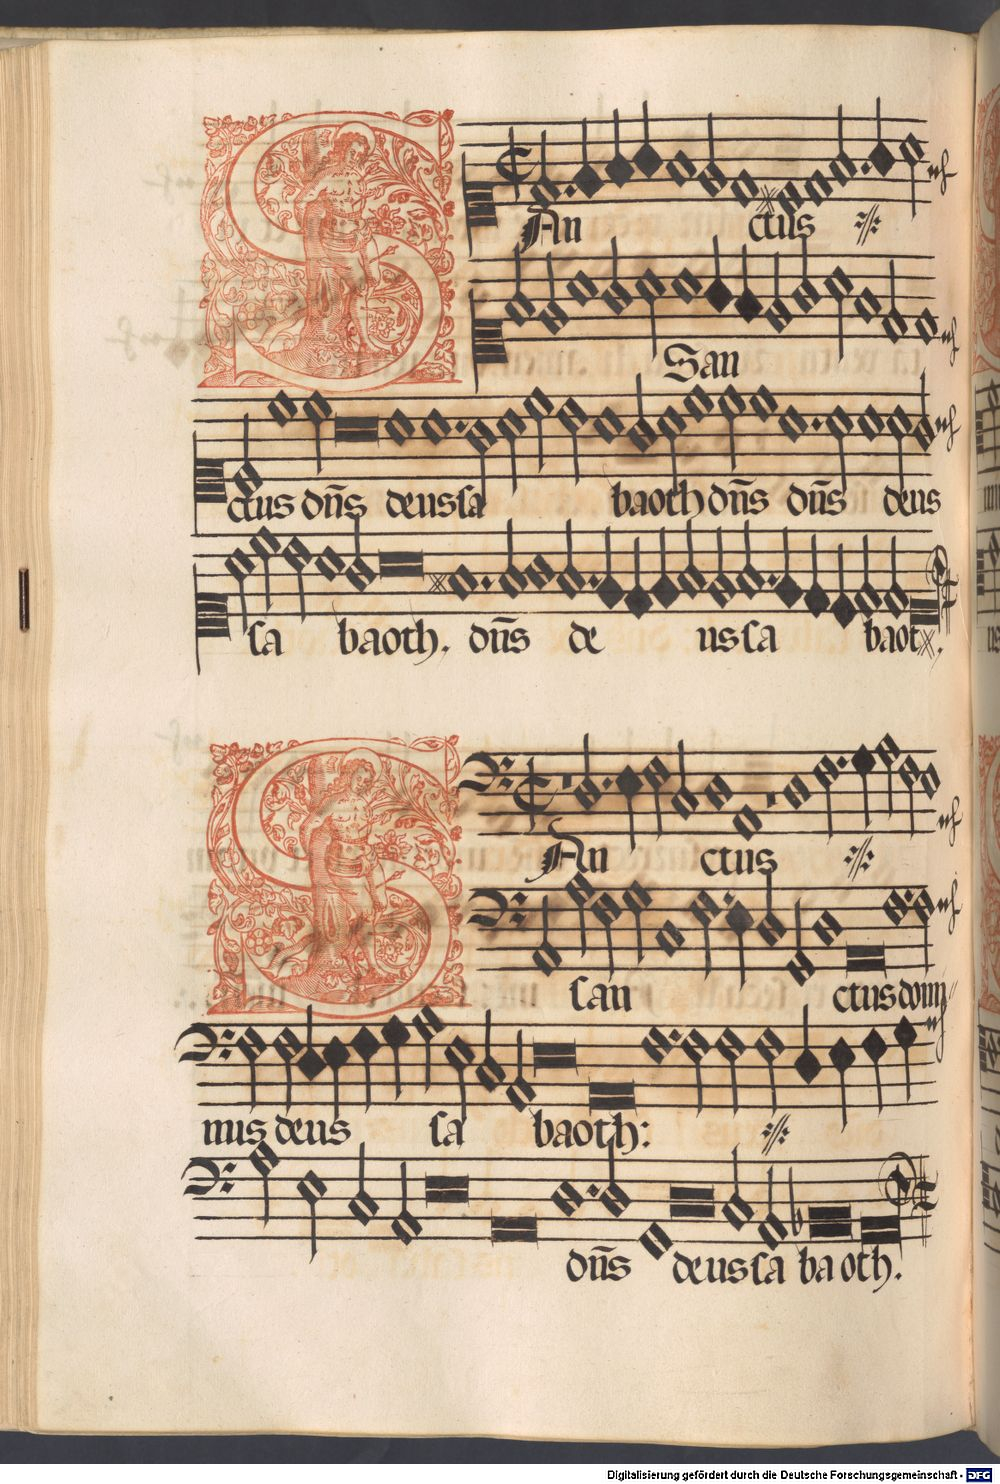 SAn ctus
San
ctus dn̄s deus sa baoth dn̄s dn̄s deus
sa baoth. dn̄s de us sa baot.
SAn ctus
san ctus domi
nus deus sa baoth:
dn̄s deus sa ba oth.
Digitalisierung gefördert durch die Deutsche Forschungsgemeinschaft - DFG